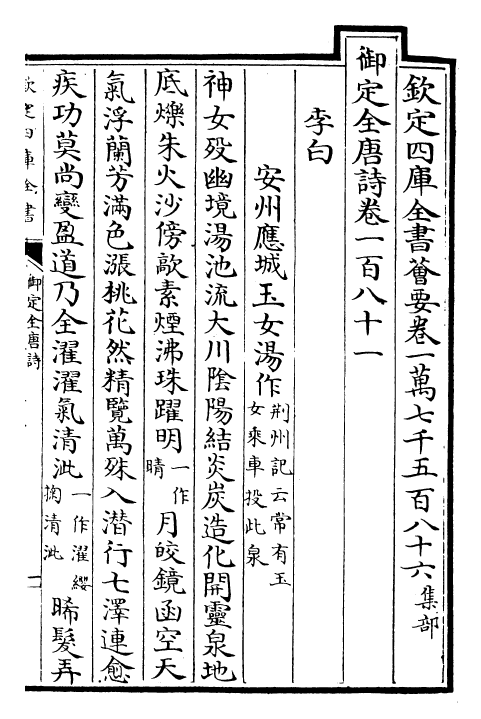 欽定四庫全書薈要卷一萬七千五百八十六集部
御定全唐詩卷一百八十一
李白
安州應城玉女湯作荆州記云常有玉女乘車投此泉
神女殁幽境湯池流大川陰陽結炎炭造化開靈泉地
底爍朱火沙傍歊素煙沸珠躍明一作晴月皎鏡函空天
氣浮蘭芳滿色漲桃花然精覽萬殊入潜行七澤連愈
疾功莫尚變盈道乃全濯濯氣清沘一作濯纓掬清沘晞髮弄
欽定四庫全書
御定全唐詩
一